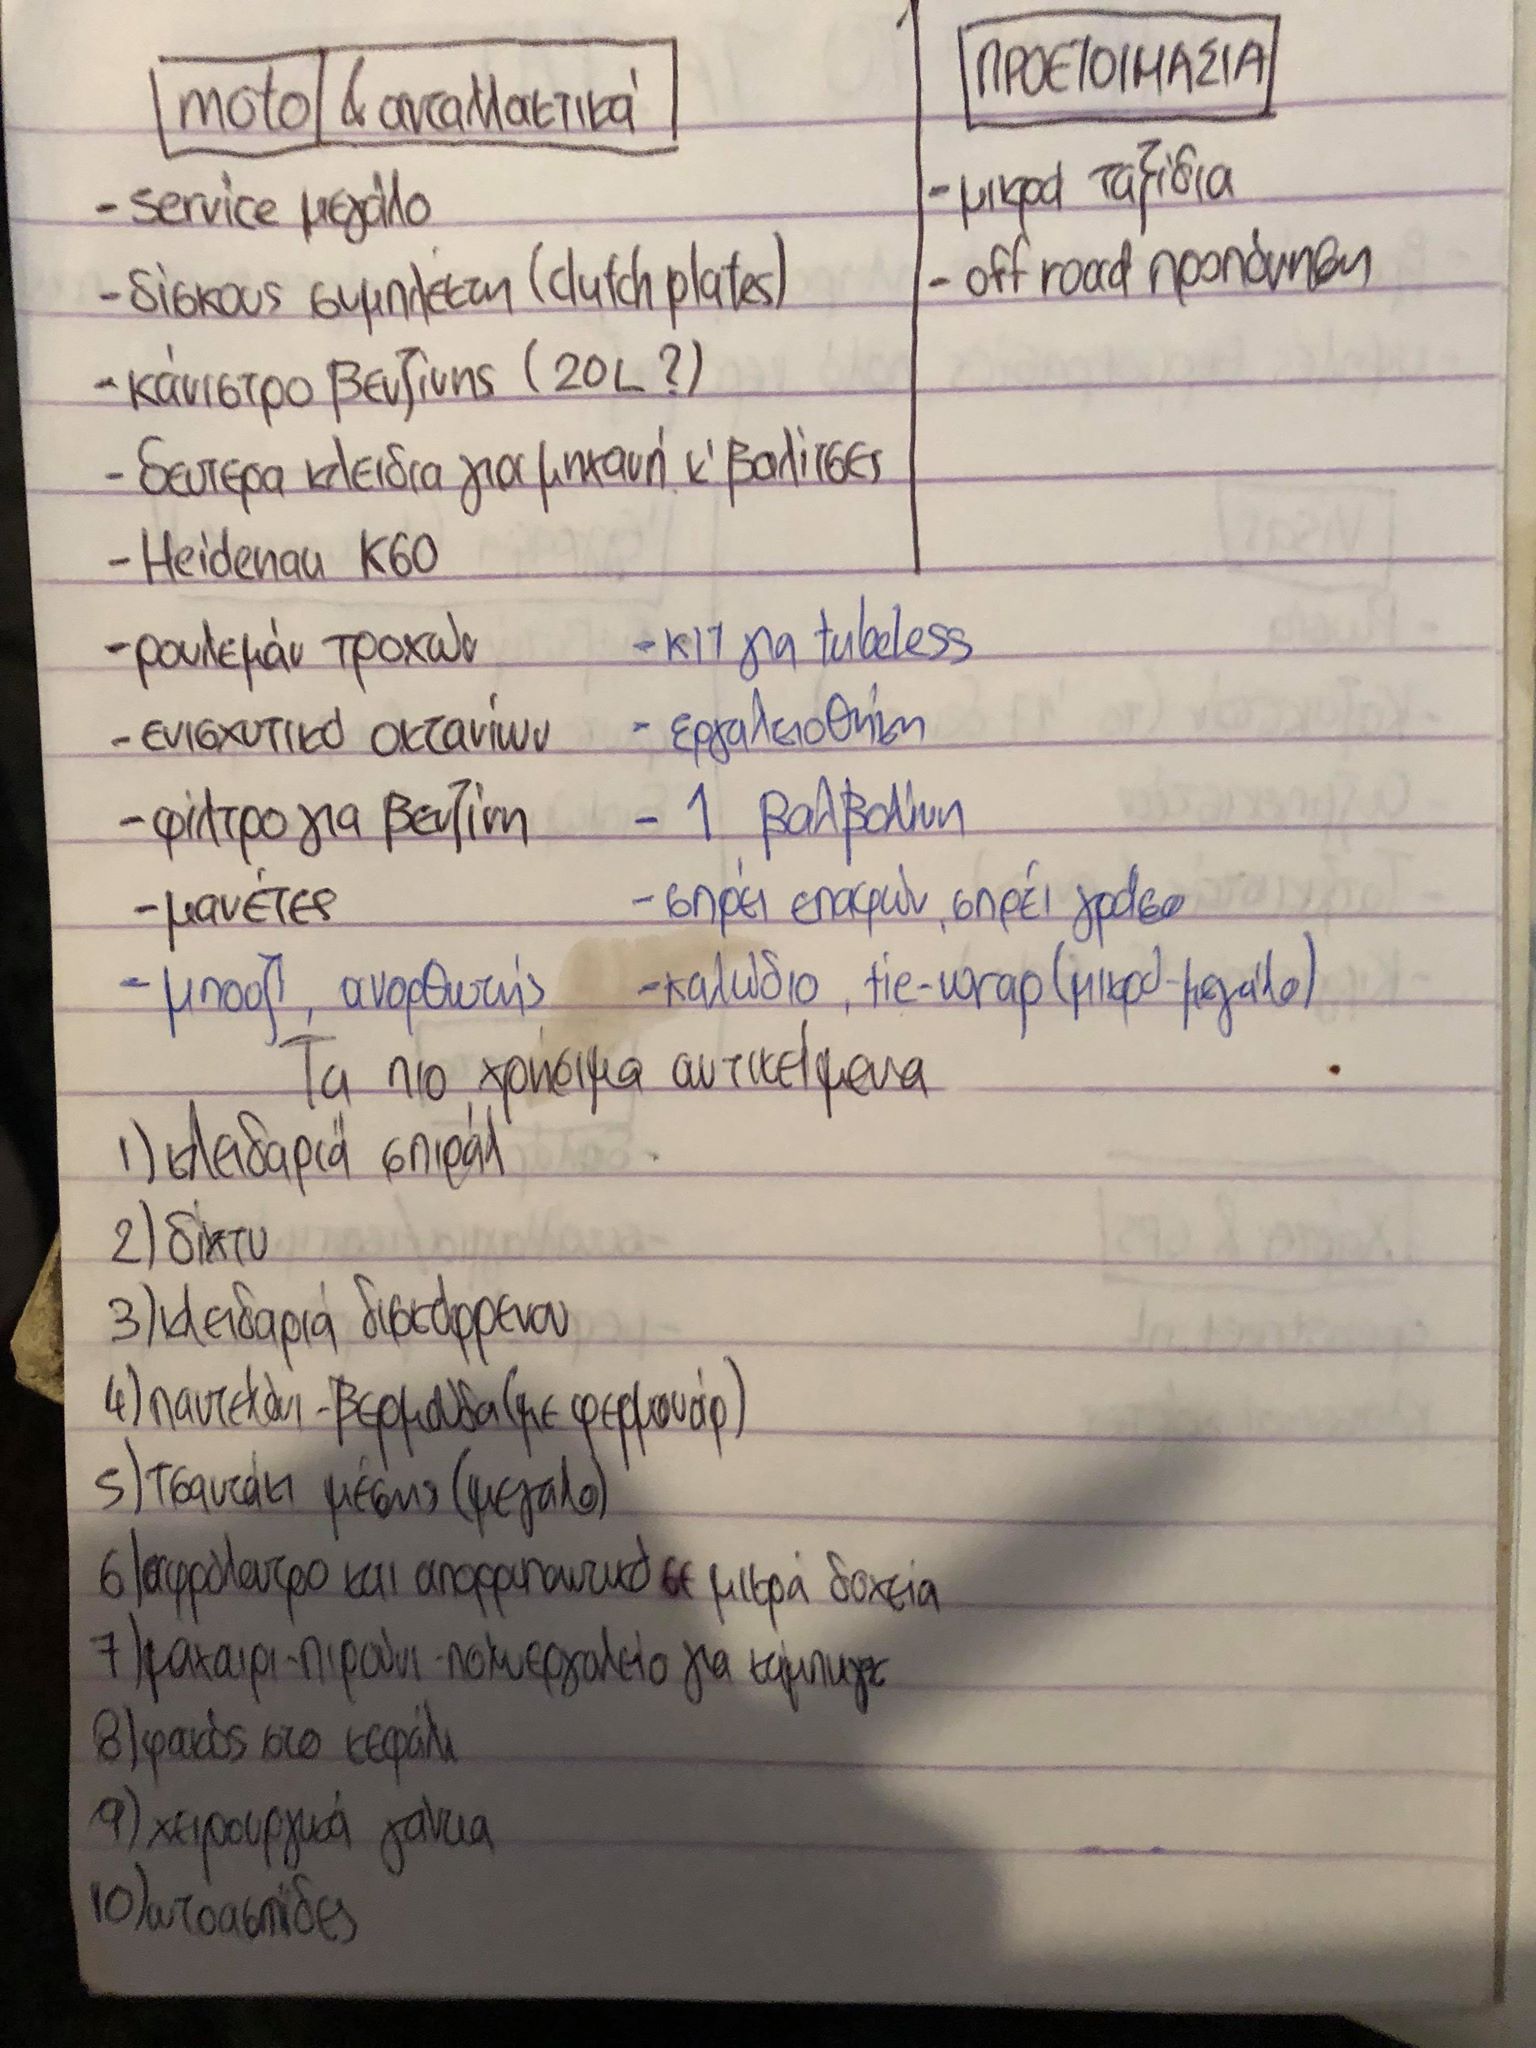 moto & ανταλλακτικά
- service μεγάλο
- δίσκους συμπλέκτη (clutch plates)
- κάνιστρο βενζίνης (20L?)
- δευτερα κλειδια για μηχανή κ' βαλίτσες
- Heidenau K60
- ρουλεμάν τροχών
- ενισχυτικό οκτανίων
- φίλτρο για βενζίνη
- μανέτες
- μπουζί, ανορθωτής
ΠΡΟΕΤΟΙΜΑΣΙΑ
- μικρά ταξίδια
- off road προπόνηση
- κιτ για tubeless
- εργαλειοθήκη
- 1 βαλβολίνη
- σπρέι επαφών, σπρέι γράσο
- καλώδιο, tie-wrap (μικρό-μεγάλο)
Τα πιο χρήσιμα αντικείμενα
1) κλειδαριά σπιράλ
2) δίχτυ
3) κλειδαριά δισκόφρενου
4) παντελόνι-βερμούδα (με φερμουάρ)
5) τσαντάκι μέσης (μεγάλο)
6) αφρόλουτρο και απορρυπαντικό σε μικρά δοχεία
7) μαχαιρι-πιρούνι-πολυεργαλείο για κάμπινγκ
8) φακός στο κεφάλι
9) χειρουργικά γάντια
10) ωτοασπίδες